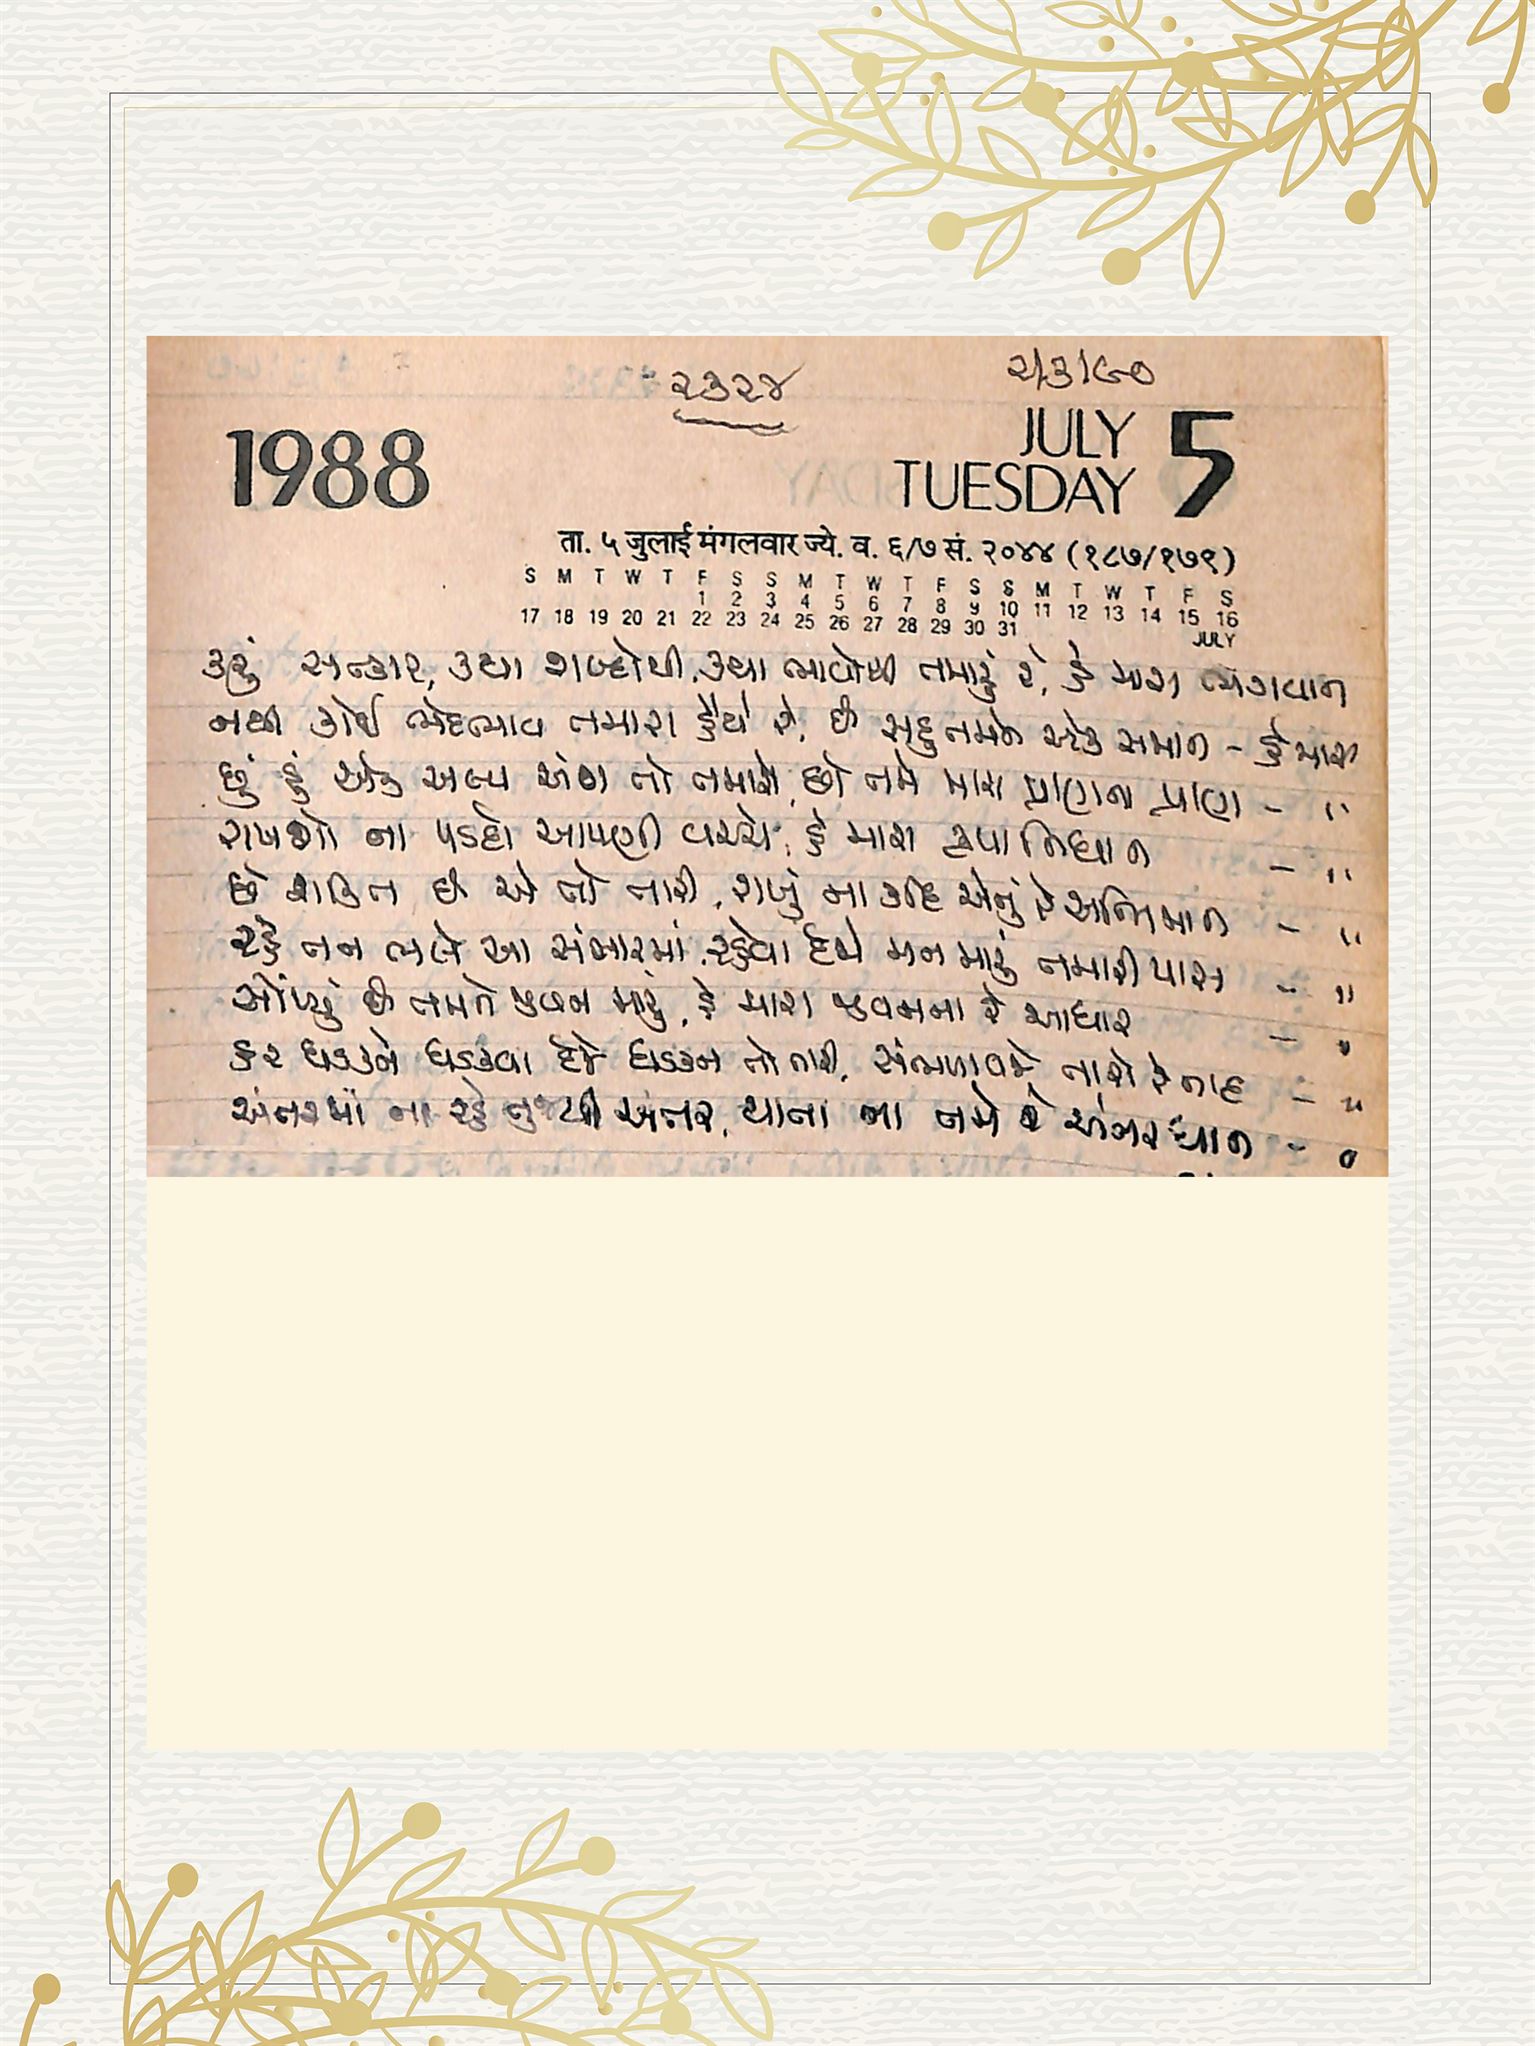 ૨૩૨૪
૨/૩/૯૦
1988
JULY 5
TUESDAY
ता. ५ जुलाई मंगलवार ज्ये. व. ६/७ सं. २०४४ (१८७/१७९)
S M T W T F S S M T W T F S S M T W T F S
1 2 3 4 5 6 7 8 9 10 11 12 13 14 15 16
17 18 19 20 21 22 23 24 25 26 27 28 29 30 31
JULY
કરું સત્કાર, કયા શબ્દોથી, કયા ભાવોથી તમારું રે, હે મારા ભગવાન
નથી કોઈ ભેદભાવ તમારા હૈયે રે, છે સહુ તમને એક સમાન - હે મારા
છું હું એક અલ્પ અંશ તો તમારો, છો તમે મારા પ્રાણના પ્રાણ - "
રાખશો ના પડદો આપણી વચ્ચે, હે મારા કૃપાનિધાન - "
છે શક્તિ છે એ તો તારી, રાખું ના કદિ એનું રે અભિમાન - "
રહે તન ભલે આ સંસારમાં, રહેવા દેજે મન મારું તમારી પાસ - "
સોંપ્યું છે તમને જીવન મારું, હે મારા જીવનના રે આધાર - "
હર ધડકને ધડકવા દેજે ધડકન તો તારી, સંભળાવજે તારો રે નાદ - "
અંતરમાં ના રહે તુજથી અંતર, થાતા ના તમે રે અંતરધાન - "